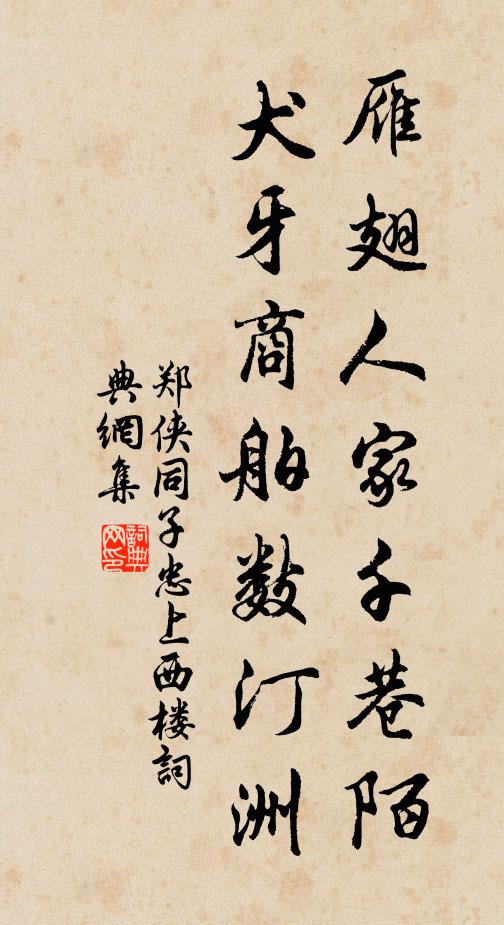 雁翅人家千巷陌
犬牙商舶数汀洲
郑侠同子忠上西楼詞
典網集
詞典網印